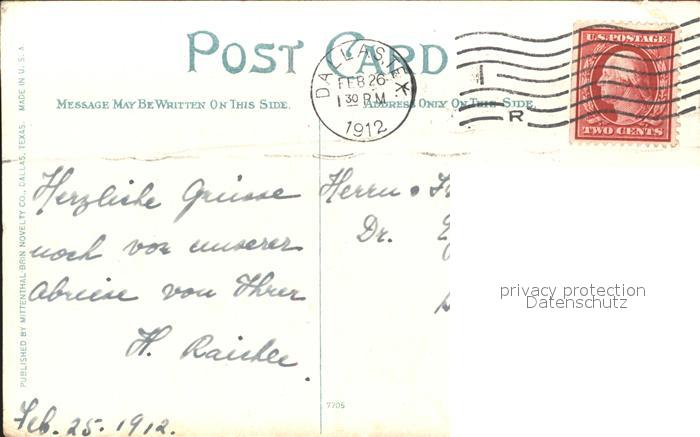 POST CARD
MESSAGE MAY BE WRITTEN ON THIS SIDE.
ADDRESS ONLY ON THIS SIDE.
DALLAS, TEX.
FEB 26
1 30 P M
1912
1
R
U.S. POSTAGE
TWO CENTS
PUBLISHED BY MITTENTHAL-BRIN NOVELTY CO., DALLAS, TEXAS. MADE IN U. S. A.
Herzliche Grüsse
noch vor unserer
Abreise von Ihrer
H.
Feb. 25. 1912.
Herrn
Dr.
7705
privacy protection
Datenschutz